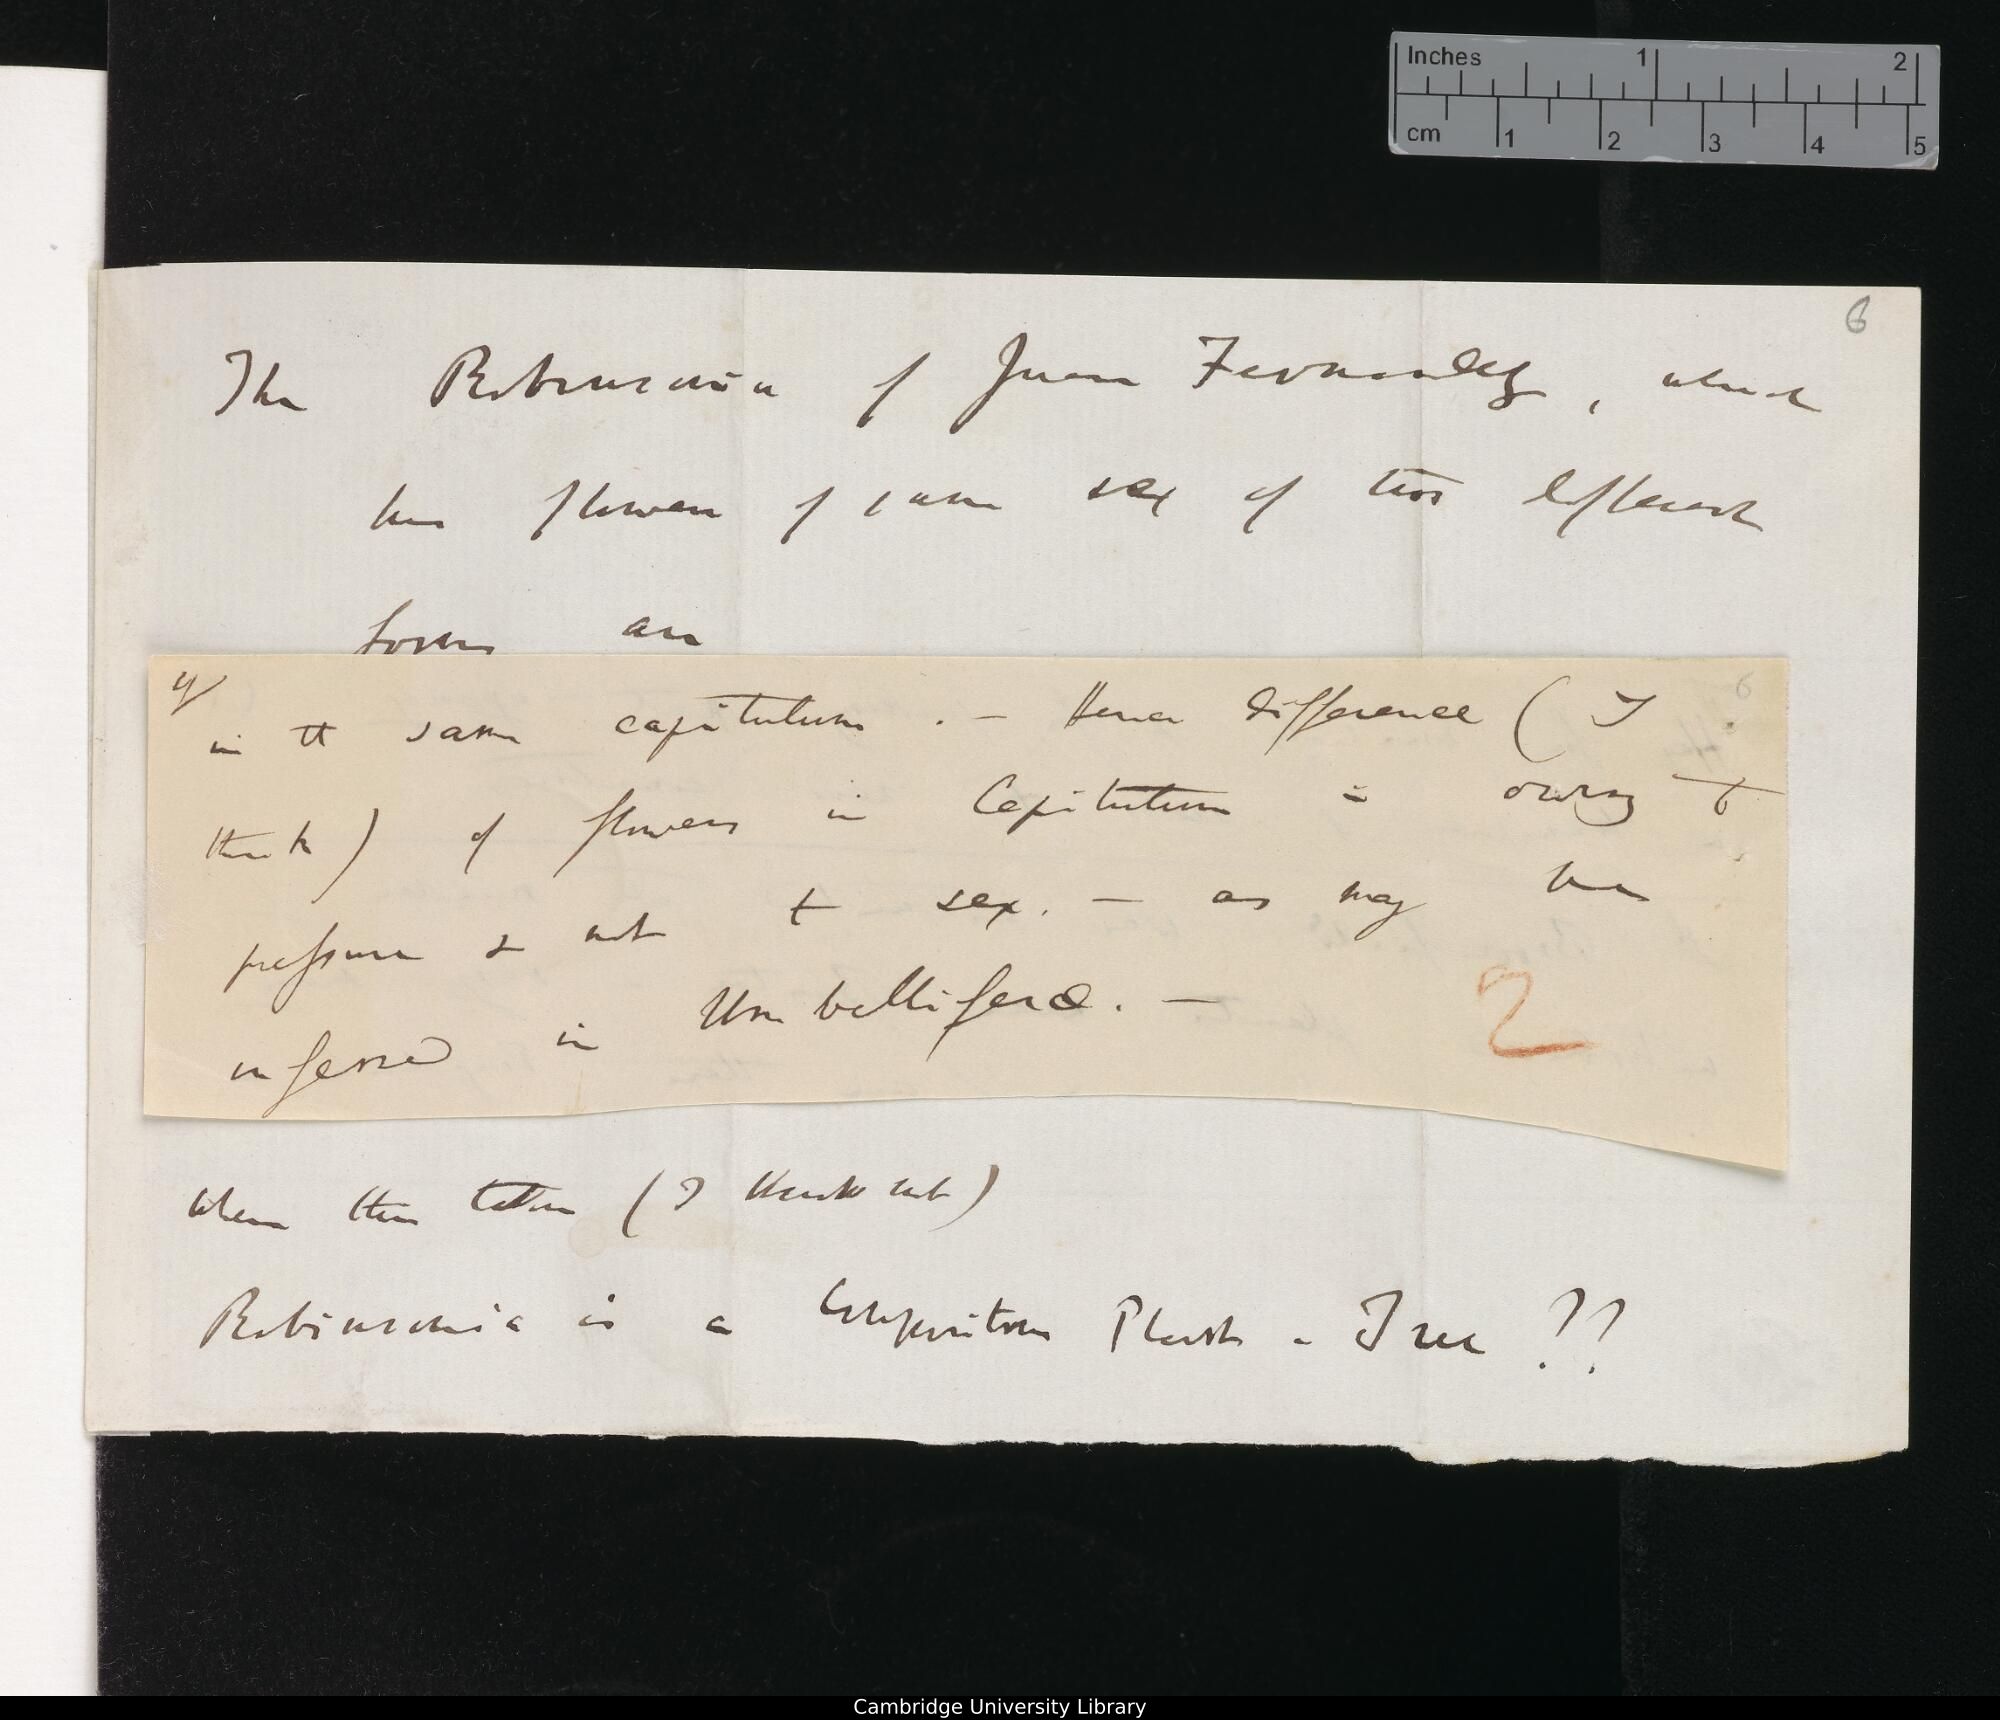 Inches 1 2
cm 1 2 3 4 5
6
The Robinsonia of Juan Fernandez, which
has flowers of same sex of two different
forms are
6
in the same capitulum. — Hence difference (I
think) of flowers in Capitulum is owing to
pressure & not to sex. — as may be
inferred in Umbelliferæ. —
2
Where then taken (I think not)
Robinsonia is a Compositous Plant – Tree ??
Cambridge University Library